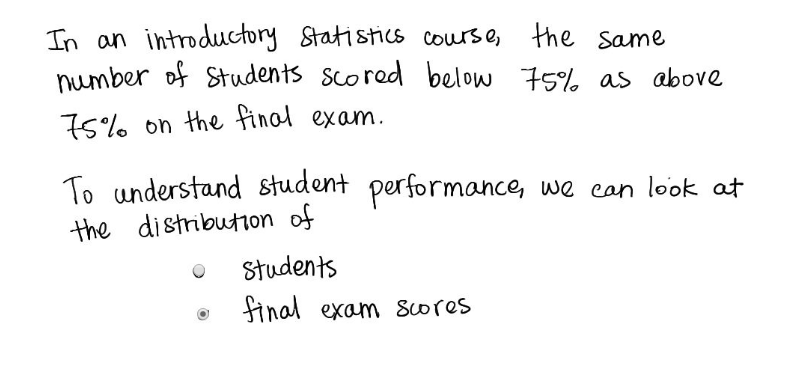 In an introductory statistics course, the same
number of students scored below 75% as above
75% on the final exam.
To understand student performance, we can look at
the distribution of
students
final exam scores